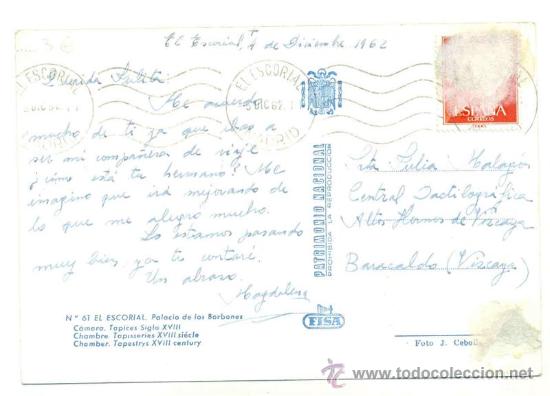 El Escorial, 4 de Diciembre 1962
Querida Julita:
Me acuerdo
mucho de ti ya que ibas a
ser mi compañera de viaje
¿cómo está tu hermano? Me
imagino que irá mejorando de
lo que me alegro mucho.
Lo estamos pasando
muy bien, ya te contaré.
Un abrazo
Magdalena
EL ESCORIAL
DIC 62
MADRID
ESPAÑA
CORREOS
PATRIMONIO NACIONAL
PROHIBIDA LA REPRODUCCION
Srta Julia Malagón
Central Dactilográfica
Altos Hornos de Vizcaya
Baracaldo (Vizcaya)
N° 61 EL ESCORIAL. Palacio de los Borbones
Cámara. Tapices Siglo XVIII
Chambre. Tapisseries XVIII siécle
Chamber. Tapestrys XVIII century
FISA
Foto J. Cebol
www.todocoleccion.net